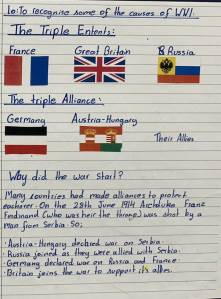 Lo: To recognise some of the causes of WW1.
The Triple Entente:
France Great Britain & Russia
The triple Alliance:
Germany Austria-Hungary
Their Allies
Why did the war start?
Many countries had made alliances to protect
eachover. On the 28th June 1914 Archduke Franz
Ferdinand (who was heir the throne) was shot by a
man from Serbia. So;
· Austria-Hungary declared war on Serbia.
· Russia joined as they were allied with Serbia.
· Germany declared war on Russia and France.
· Britain joins the war to support it's allies.